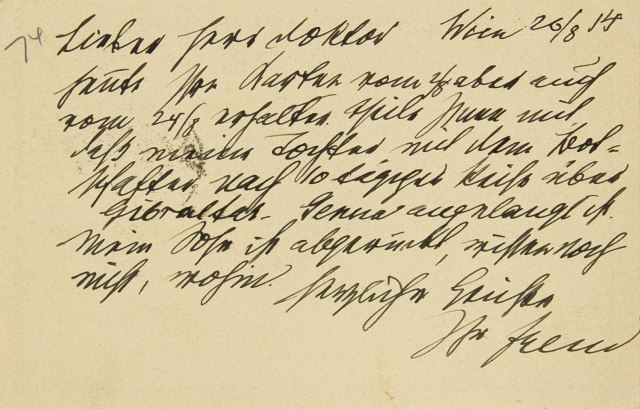 74
Lieber Herr Doktor Wien 26/8 14
Heute Ihre Karten vom 2/8 aber auch
vom 24/8 erhalten. Theile Ihnen mit,
daß meine Tochter mit dem Bot-
schafter nach 10 tägiger Reise über
Gibraltar - Genua angelangt ist.
Mein Sohn ist abgerückt, wissen noch
nicht, wohin.
Herzliche Grüße
Ihr Freud